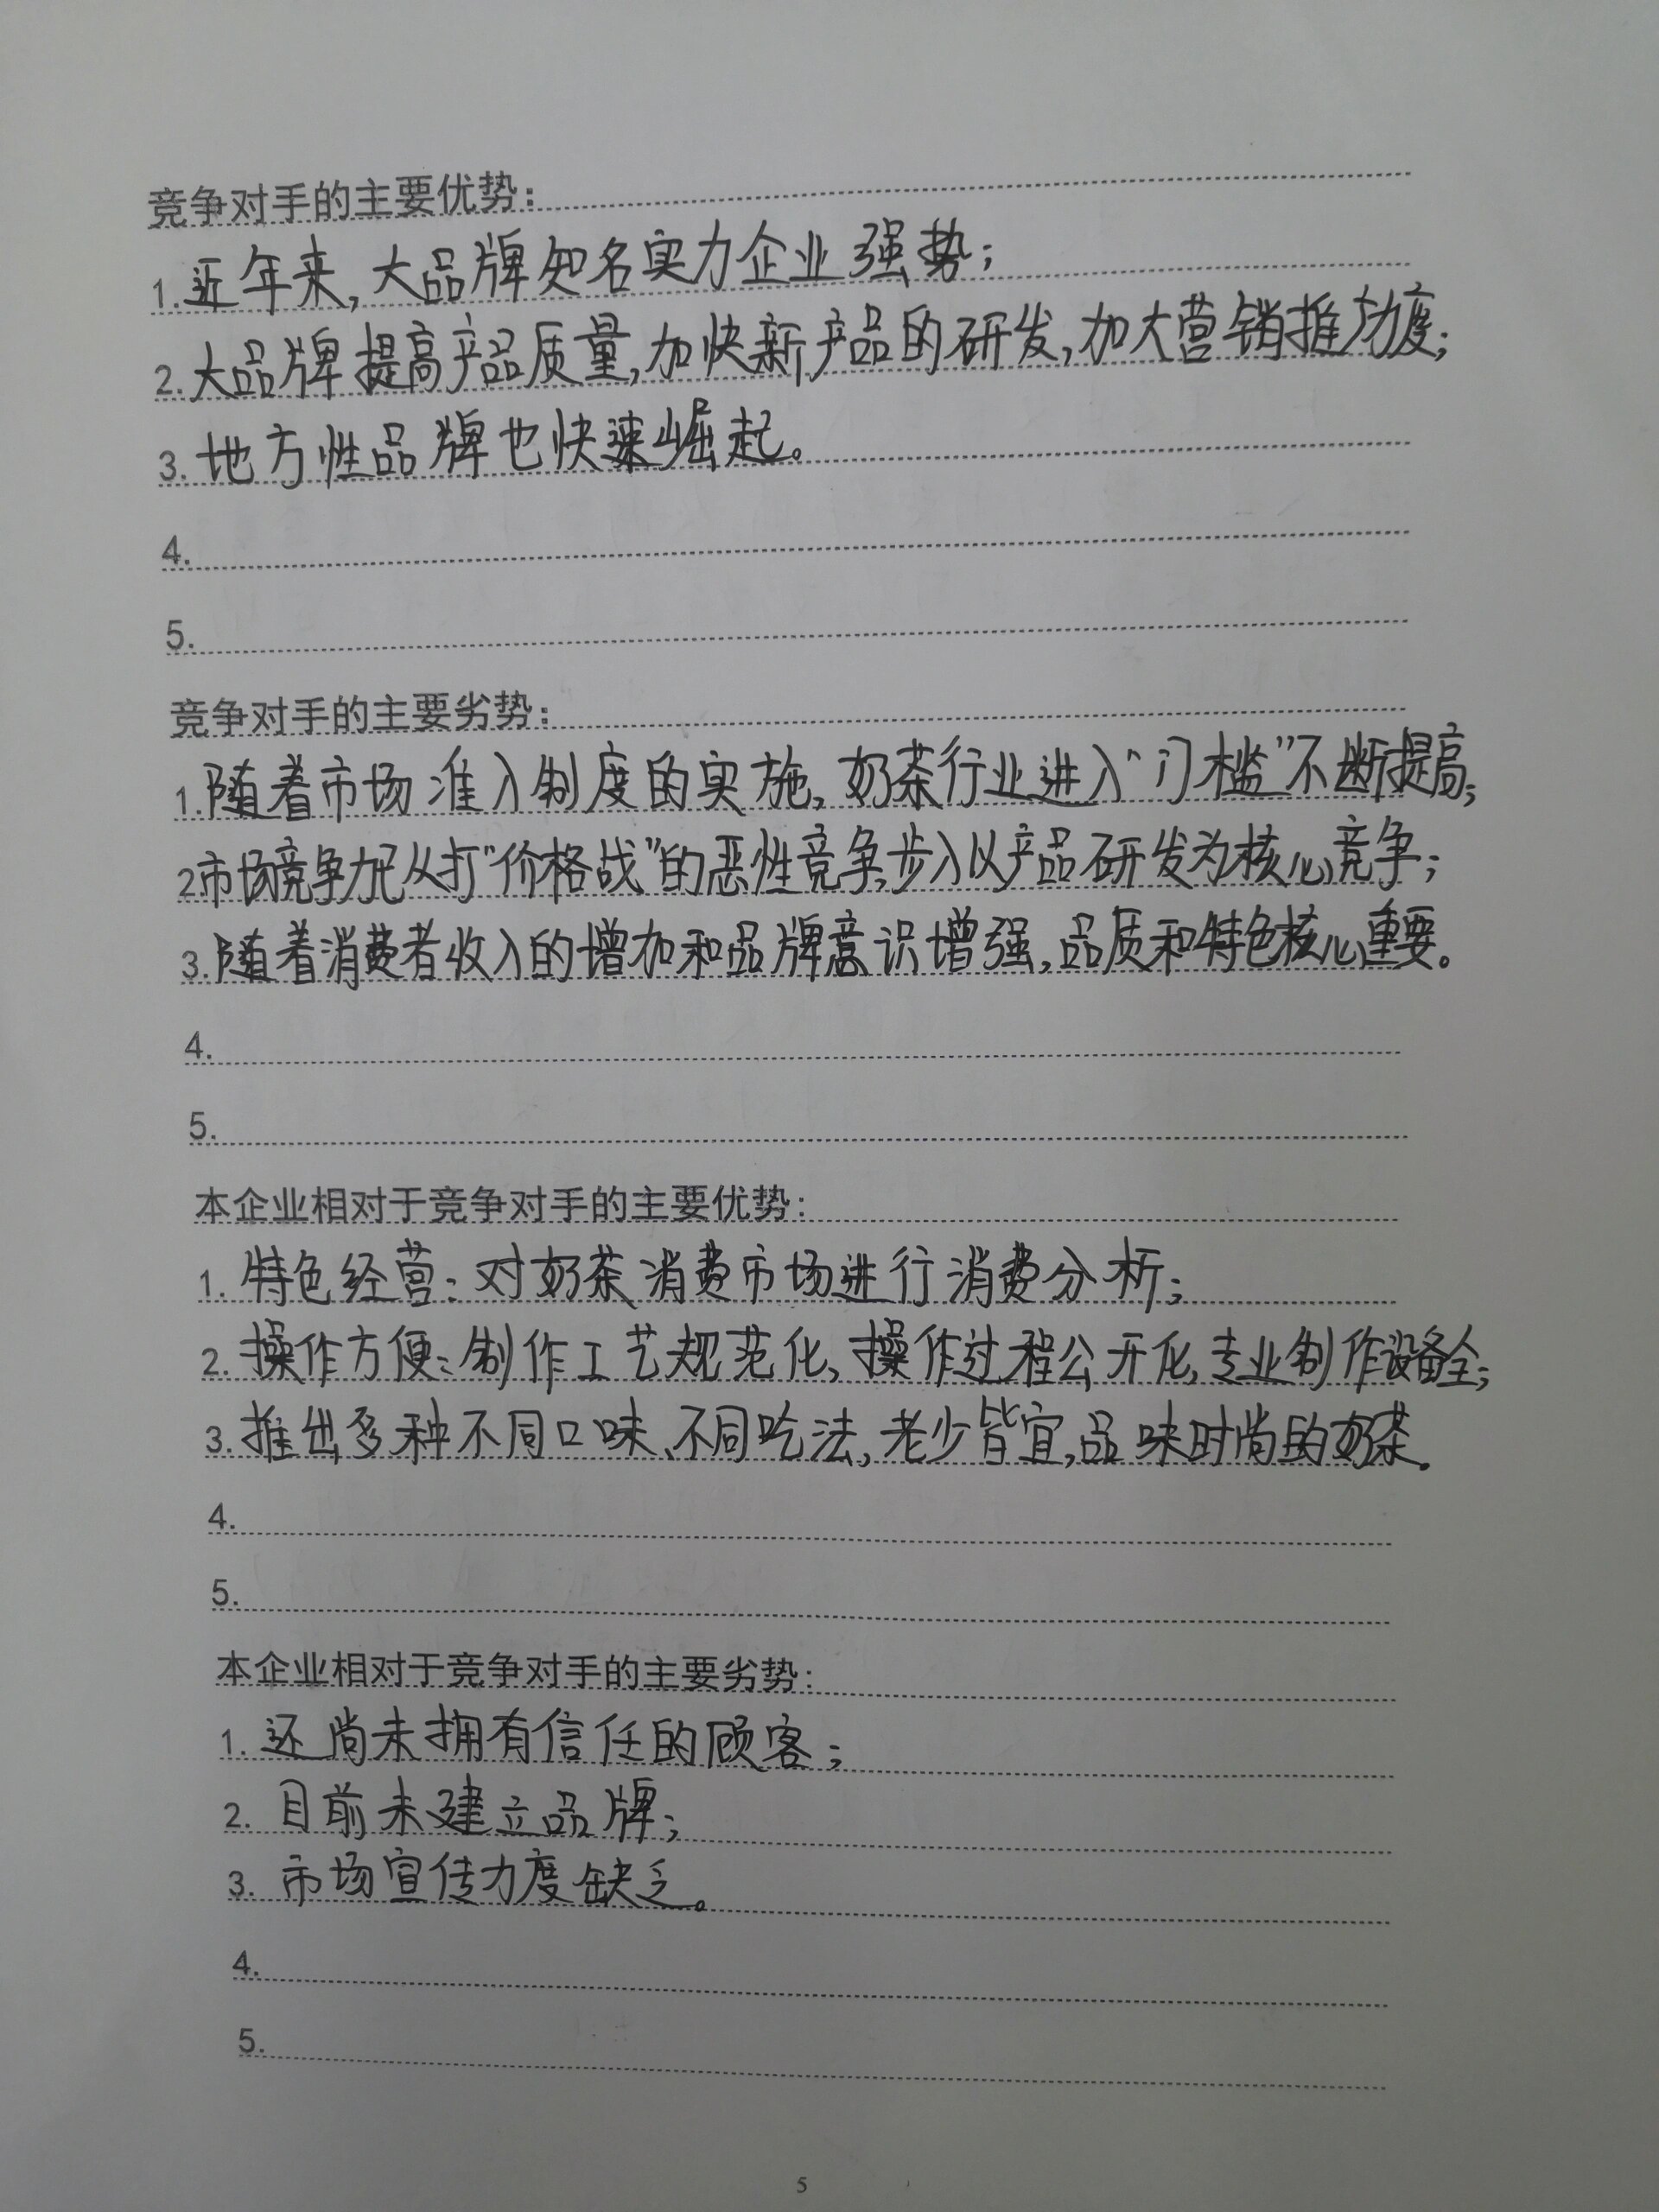 竞争对手的主要优势:
1.近年来,大品牌知名实力企业强势;
2.大品牌提高产品质量,加快新产品的研发,加大营销推力度;
3.地方性品牌也快速崛起。
4.
5.
竞争对手的主要劣势:
1.随着市场准入制度的实施,奶茶行业进入“门槛”不断提高;
2市场竞争从打“价格战”的恶性竞争,步入以产品研发为核心竞争;
3.随着消费者收入的增加和品牌意识增强,品质和特色核心重要。
4.
5.
本企业相对于竞争对手的主要优势:
1.特色经营:对奶茶消费市场进行消费分析;
2.操作方便:制作工艺规范化,操作过程公开化,专业制作设备全;
3.推出多种不同口味、不同吃法,老少皆宜,品味时尚的奶茶.
4.
5.
本企业相对于竞争对手的主要劣势:
1.还尚未拥有信任的顾客;
2.目前未建立品牌;
3.市场宣传力度缺乏。
4.
5.
5